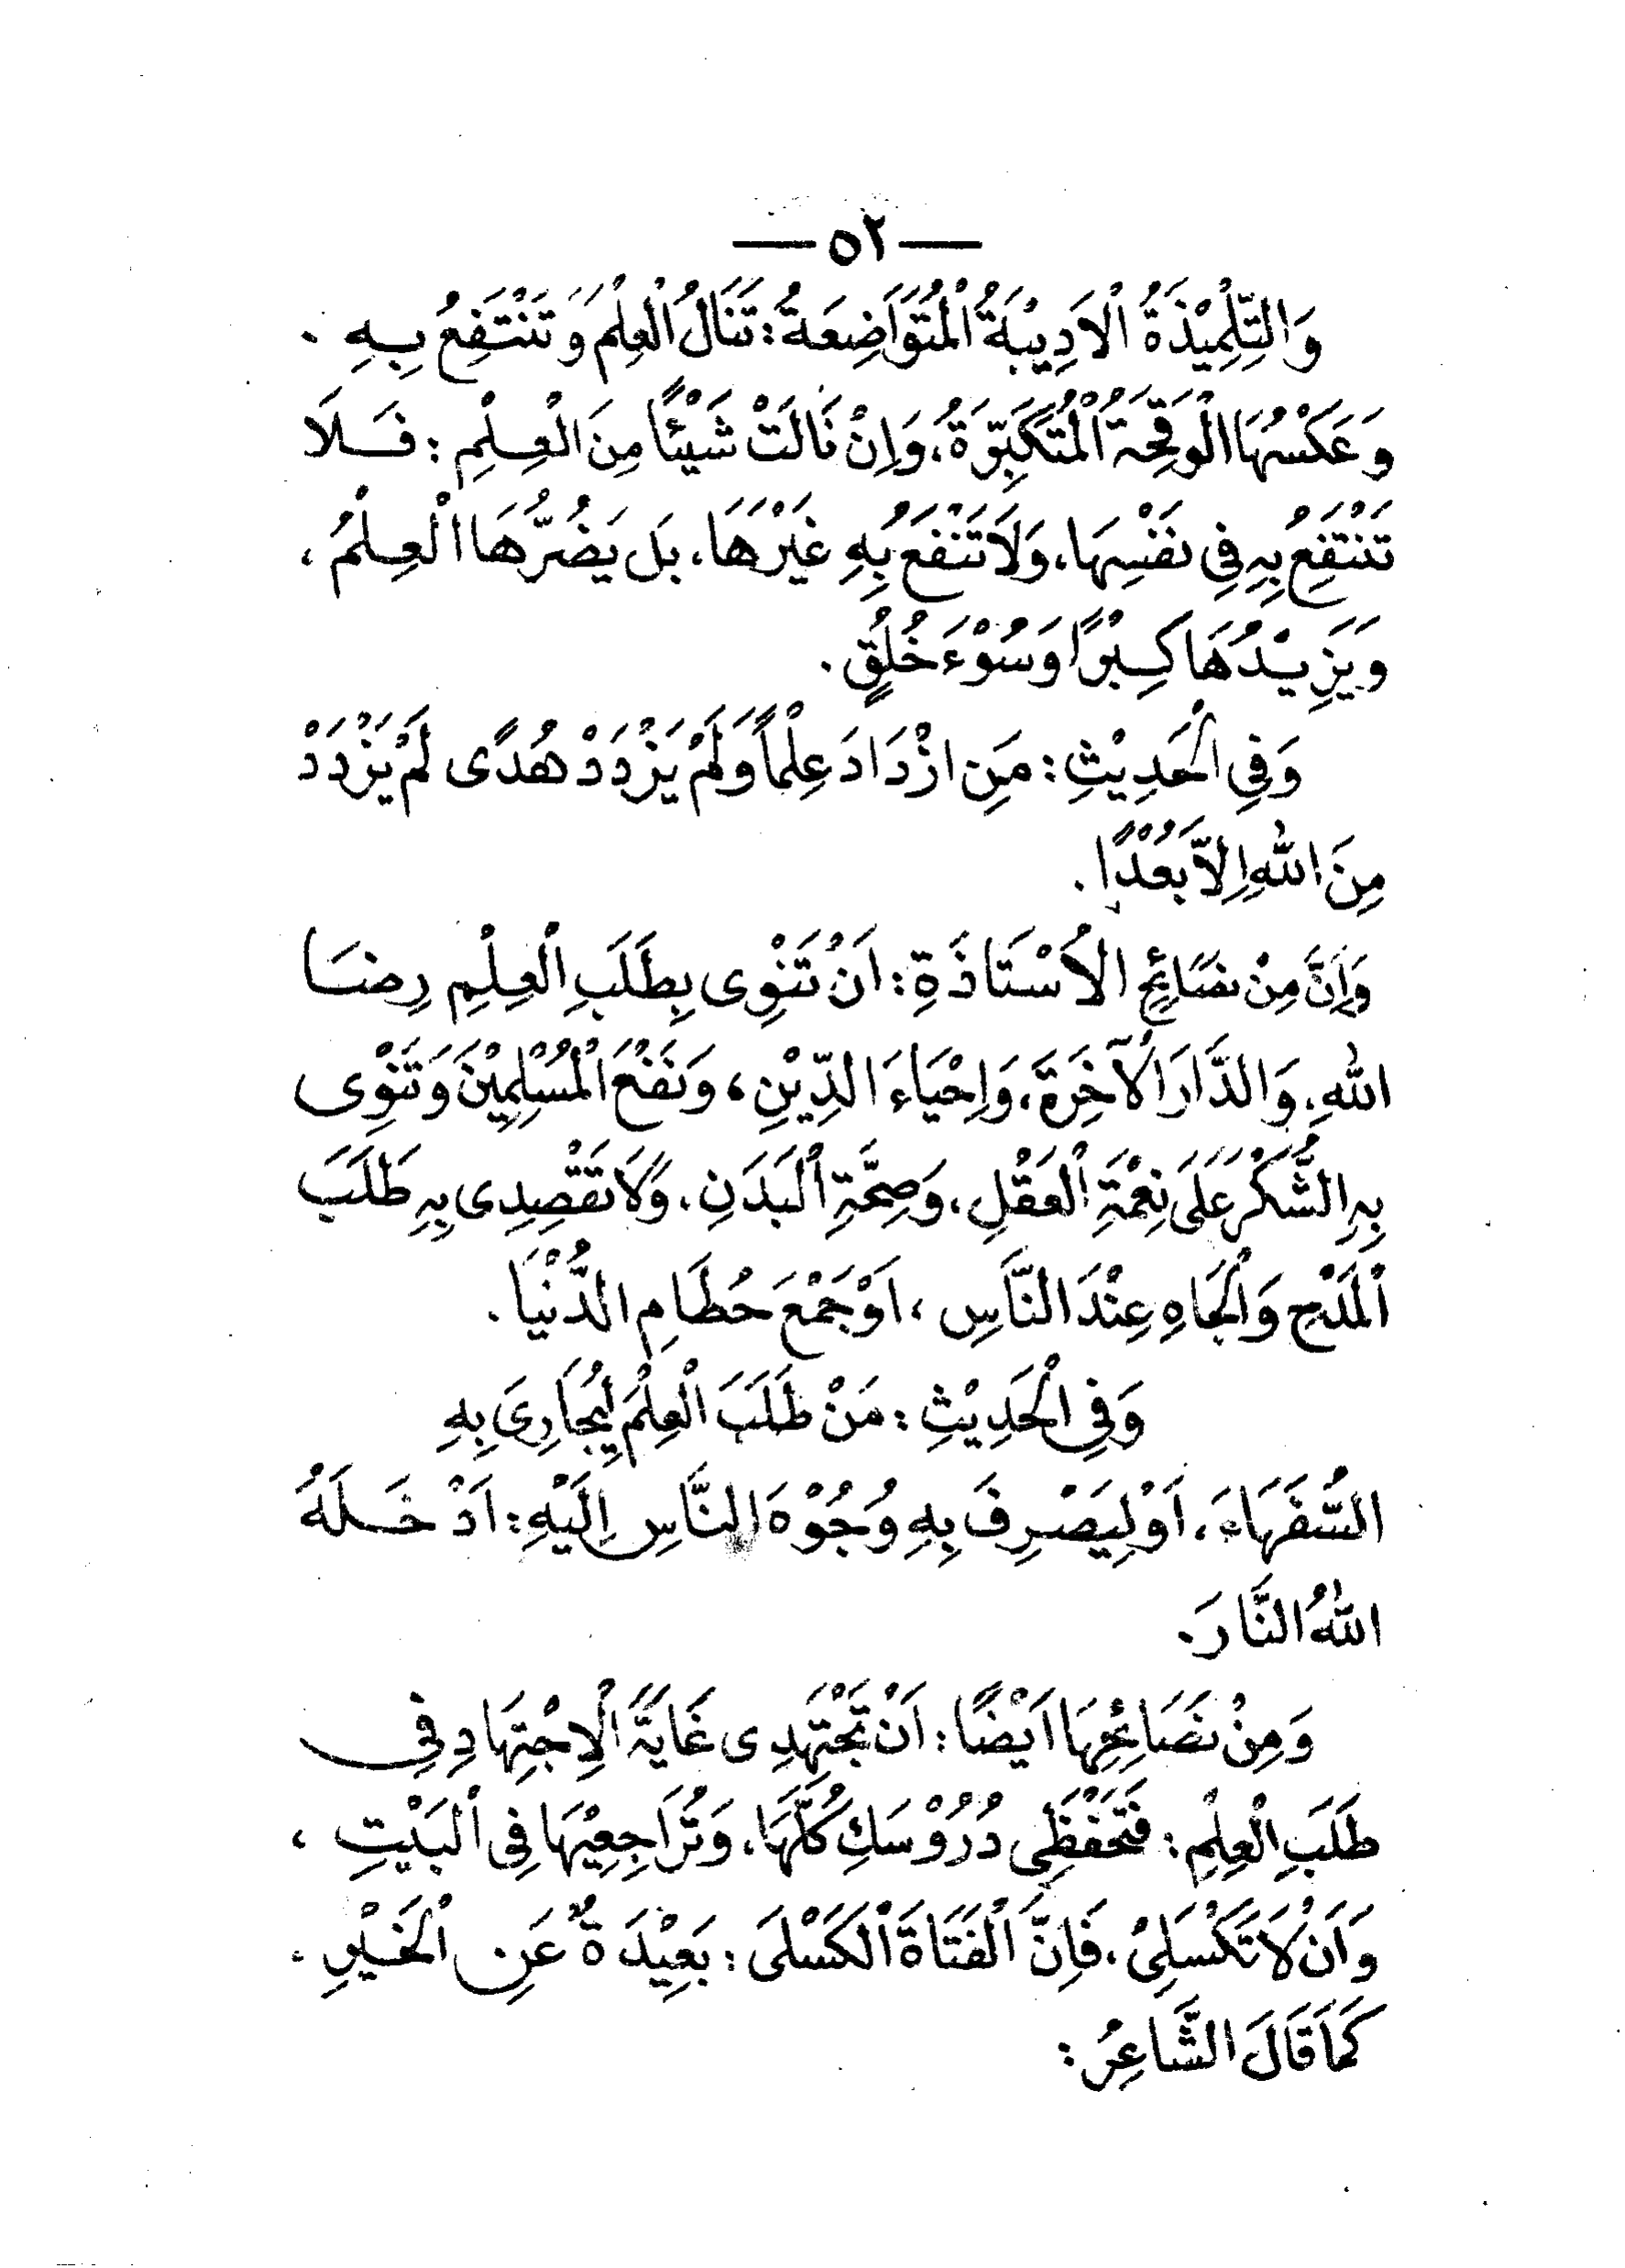 — ٥٢ —
وَالتِّلْمِيْذَةُ الْاَدِيْبَةُ الْمُتَوَاضِعَةُ: تَنَالُ الْعِلْمَ وَتَنْتَفِعُ بِهِ .
وَعَكْسُهَا الْوَقِحَةُ الْمُتَكَبِّرَةُ، وَاِنْ نَالَتْ شَيْئًا مِنَ الْعِلْمِ: فَلَا
تَنْتَفِعُ بِهِ فِى نَفْسِهَا، وَلَا تَنْفَعُ بِهِ غَيْرَهَا، بَل يَضُرُّهَا الْعِلْمُ،
وَيَزِيْدُهَا كِبْرًا وَسُوْءَ خُلُقٍ .
وَفِى الْحَدِيْثِ: مَنِ ازْدَادَ عِلْمًا وَلَمْ يَزْدَدْ هُدًى لَمْ يَزْدَدْ
مِنَ اللهِ اِلَّا بُعْدًا .
وَاِنَّ مِنْ نَصَائِحِ الْاُسْتَاذَةِ: اَنْ تَنْوِى بِطَلَبِ الْعِلْمِ رِضَا
اللهِ، وَالدَّارَ الْآخِرَةَ، وَاِحْيَاءَ الدِّيْنِ، وَنَفْعَ الْمُسْلِمِيْنَ وَتَنْوِى
بِهِ الشُّكْرَ عَلَى نِعْمَةِ الْعَقْلِ، وَصِحَّةِ الْبَدَنِ، وَلَا تَقْصِدِى بِهِ طَلَبَ
الْمَدْحِ وَالْجَاهِ عِنْدَ النَّاسِ، اَوْ جَمْعَ حُطَامِ الدُّنْيَا .
وَفِى الْحَدِيْثِ: مَنْ طَلَبَ الْعِلْمَ لِيُجَارِىَ بِهِ
السُّفَهَاءَ، اَوْ لِيَصْرِفَ بِهِ وُجُوْهَ النَّاسِ اِلَيْهِ: اَدْخَلَهُ
اللهُ النَّارَ .
وَمِنْ نَصَائِحِهَا اَيْضًا: اَنْ تَجْتَهِدِى غَايَةَ الْاِجْتِهَادِ فِى
طَلَبِ الْعِلْمِ: فَتَحْفَظِى دُرُوْسَكِ كُلَّهَا، وَتُرَاجِعِيْهَا فِى الْبَيْتِ،
وَاَنْ لَا تَكْسَلِىْ، فَاِنَّ الْفَتَاةَ الْكَسْلَى: بَعِيْدَةٌ عَنِ الْخَيْرِ .
كَمَا قَالَ الشَّاعِرُ: